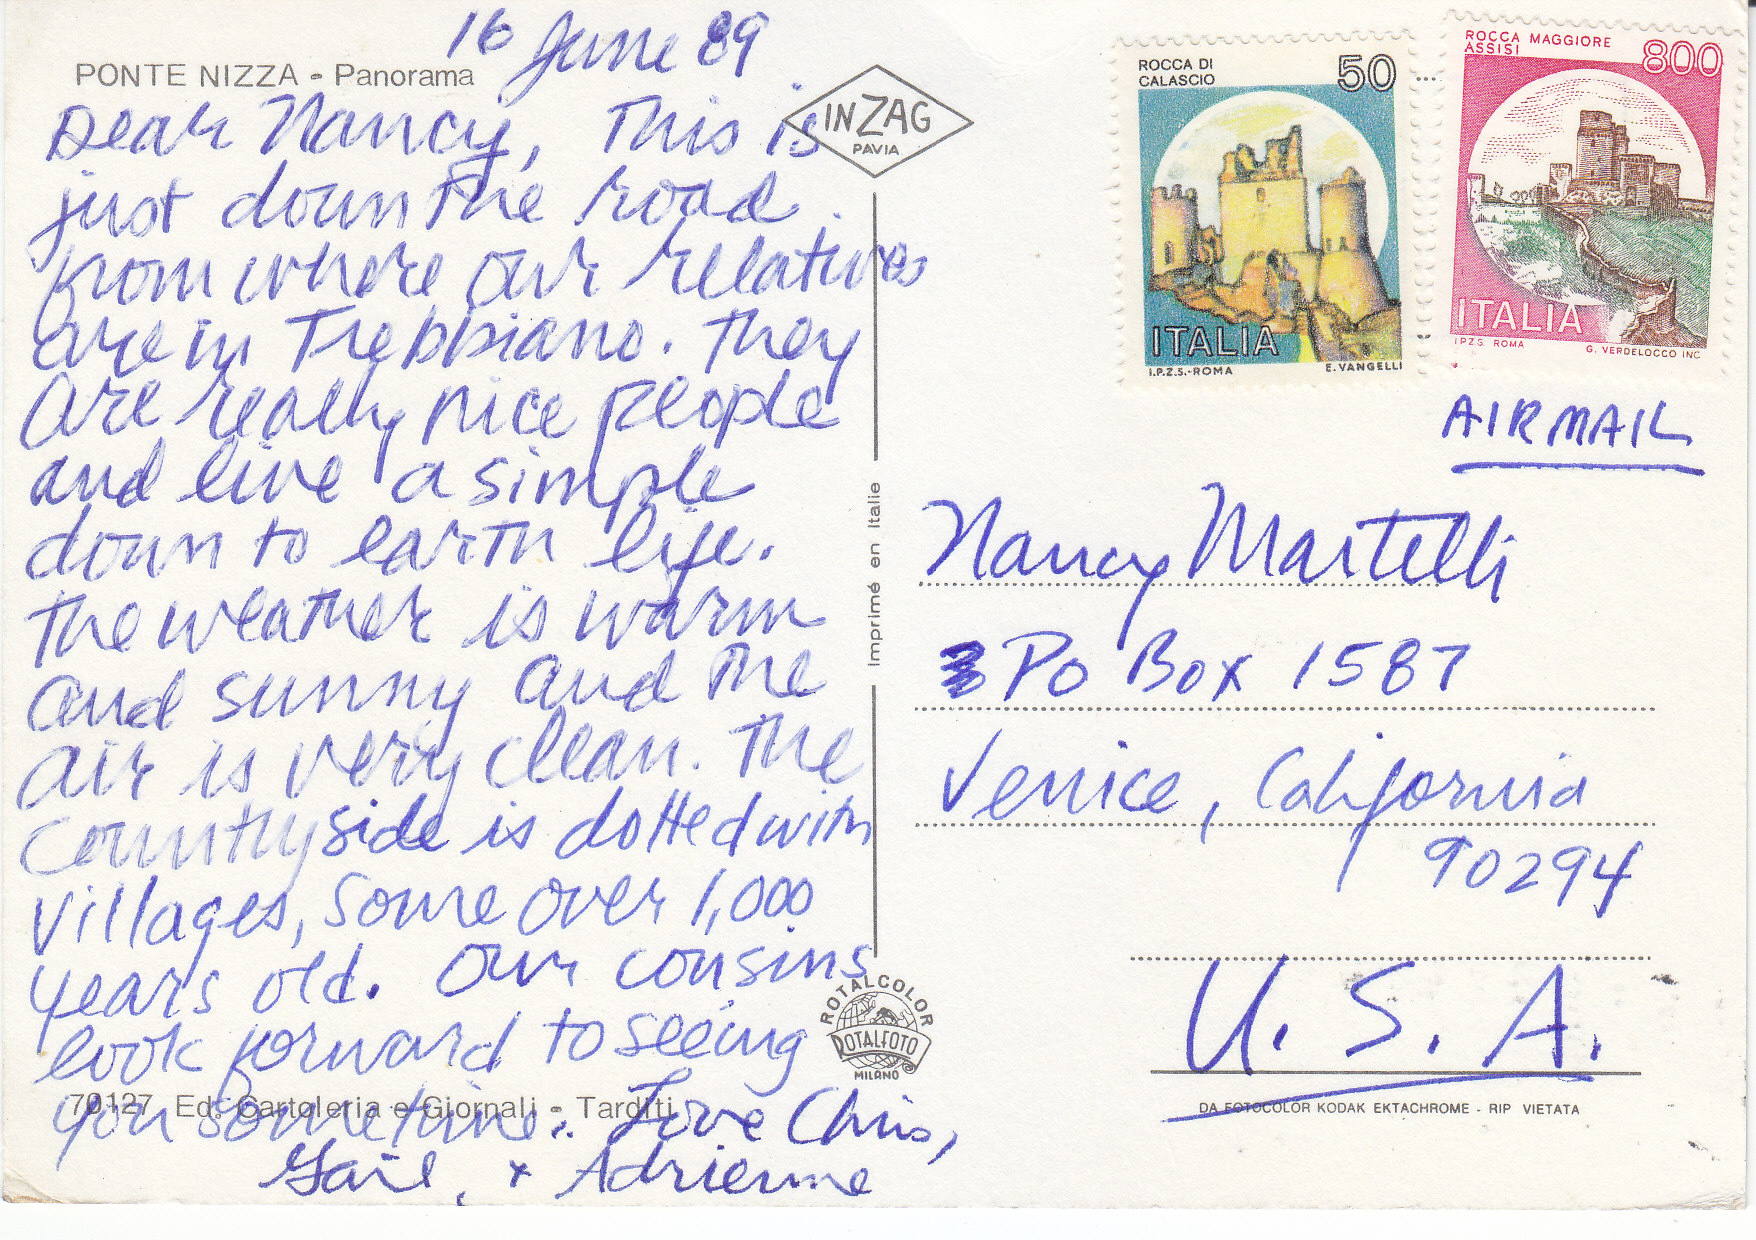 16 June 89
PONTE NIZZA - Panorama
Dear Nancy, This is
just down the road
from where our relatives
are in Trebbiano. They
are really nice people
and live a simple
down to earth life.
The weather is warm
and sunny and the
air is very clean. The
Countryside is dotted with
villages, some over 1,000
years old. Our cousins
look forward to seeing
you sometime. Love Chris,
Gail, + Adrienne
70127 Ed. Cartoleria e Giornali - Tarditi
INZAG
PAVIA
Imprimé en Italie
ROTALCOLOR
ROTALFOTO
MILANO
ROCCA DI
CALASCIO
50
ITALIA
I.P.Z.S.-ROMA E. VANGELLI
ROCCA MAGGIORE
ASSISI
800
ITALIA
I.P.Z.S. ROMA G. VERDELOCCO INC
AIRMAIL
Nancy Martelli
PO Box 1587
Venice, California
90294
U.S.A.
DA FOTOCOLOR KODAK EKTACHROME - RIP VIETATA